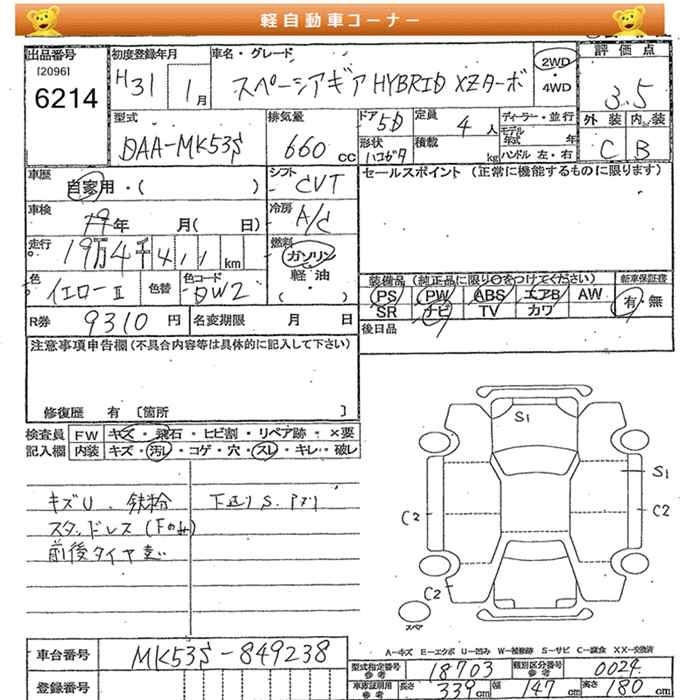 軽自動車コーナー
出品番号
[2096]
6214
初度登録年月
H31 1月
車名・グレード
スペーシアギア HYBRID XZターボ
2WD
・4WD
評価点
3.5
外装 内装
C B
型式
DAA-MK53S
排気量
660 cc
ドア 5D
形状
ハコガタ
定員 4人
積載 kg
ディーラー・並行
モデル
年式 年
ハンドル 左・右
車歴
自家用・( )
シフト
CVT
セールスポイント (正常に機能するものに限ります)
車検
年 月( 日)
冷房
A/C
走行
19万4千411km
燃料
ガソリン
・軽油
・( )
色
イエローII
色替
色コード
DW2
装備品 (純正品に限り○をつけてください)
新車保証書
PS PW ABS エアB AW
SR ナビ TV カワ
有・無
R券 9310円
名変期限 月 日
後日品
注意事項申告欄 (不具合内容等は具体的に記入して下さい)
修復歴 有 [箇所 ]
検査員
記入欄
FW キズ・飛石・ヒビ割・リペア跡・×要
内装 キズ・汚レ・コゲ・穴・スレ・キレ・破レ
キズU . 鉄粉
スタッドレス (Fのみ)
前後タイヤ
下廻りS.
S1
S1
C2
C2
C2
スペア
A-キズ E-エクボ U-凹み W-補修跡 S-サビ C-腐食 XX-交換済
車台番号 MK53S-849238
登録番号
型式指定番号
参考
18703
類別区分番号
参考
0024
車庫証明用
参考
長さ 339cm 幅 147cm 高さ 180cm